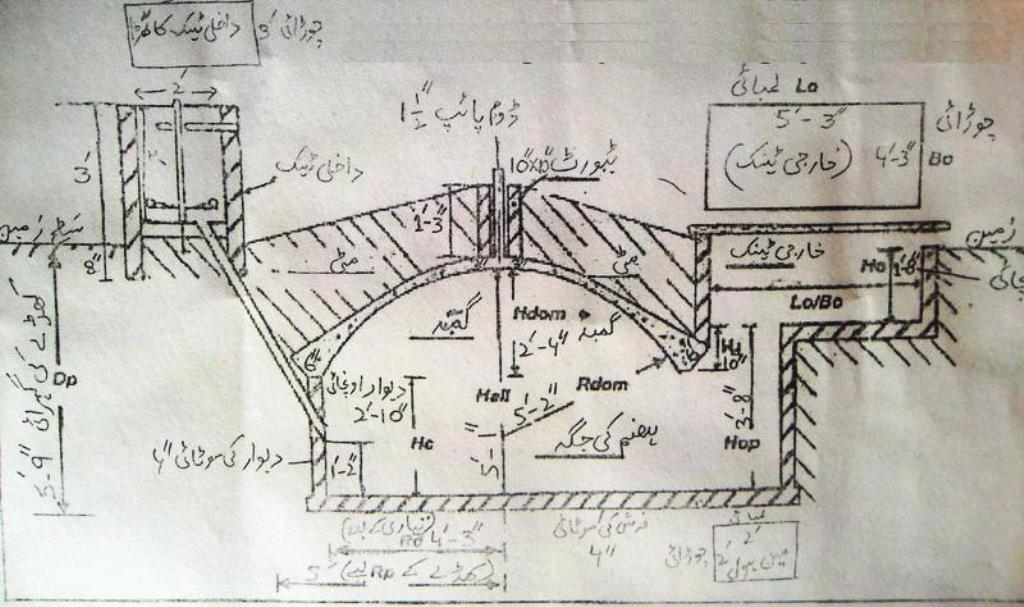 داخلی ٹینک کا گڑھا
چوڑائی 3'
2'
3'
8"
داخلی ٹینک
1½" ڈوم پائپ
10"x10"
1'-3"
مٹی
مٹی
لمبائی Lo
5'-3"
(خارجی ٹینک)
4'-3" Bo
چوڑائی
خارجی ٹینک
زمین
Ho 1'-8"
Lo/Bo
گنبد
Hdom
2'-4"
گنبد
Rdom
Hall
5'-2"
5'-1"
6"
6"
10"
3'-8"
Hop
دیوار اونچائی
2'-10"
Hc
1'-2"
دیوار کی موٹائی 4"
ہضم کی جگہ
Dp
کھڈے کی گہرائی 5'-9"
4'-3"
5' (کھڈے کے Rp)
فرش کی موٹائی
4"
لمبائی
2'
مین ہول
2' چوڑائی